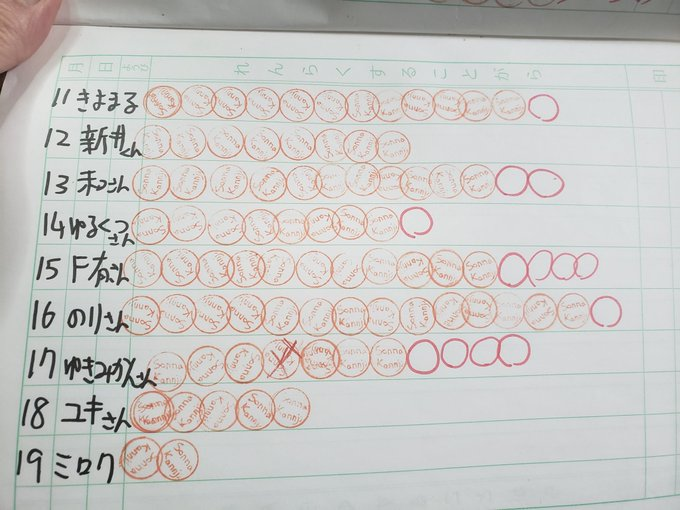 月 日 ようび れんらくすることがら 印
11 きままる
12 新井くん
13 禾っさん
14 ゆるくっさん
15 F有さん
16 のりさん
17 ゆきみかんさん
18 ユキさん
19 ミロク
Sonna Kanji